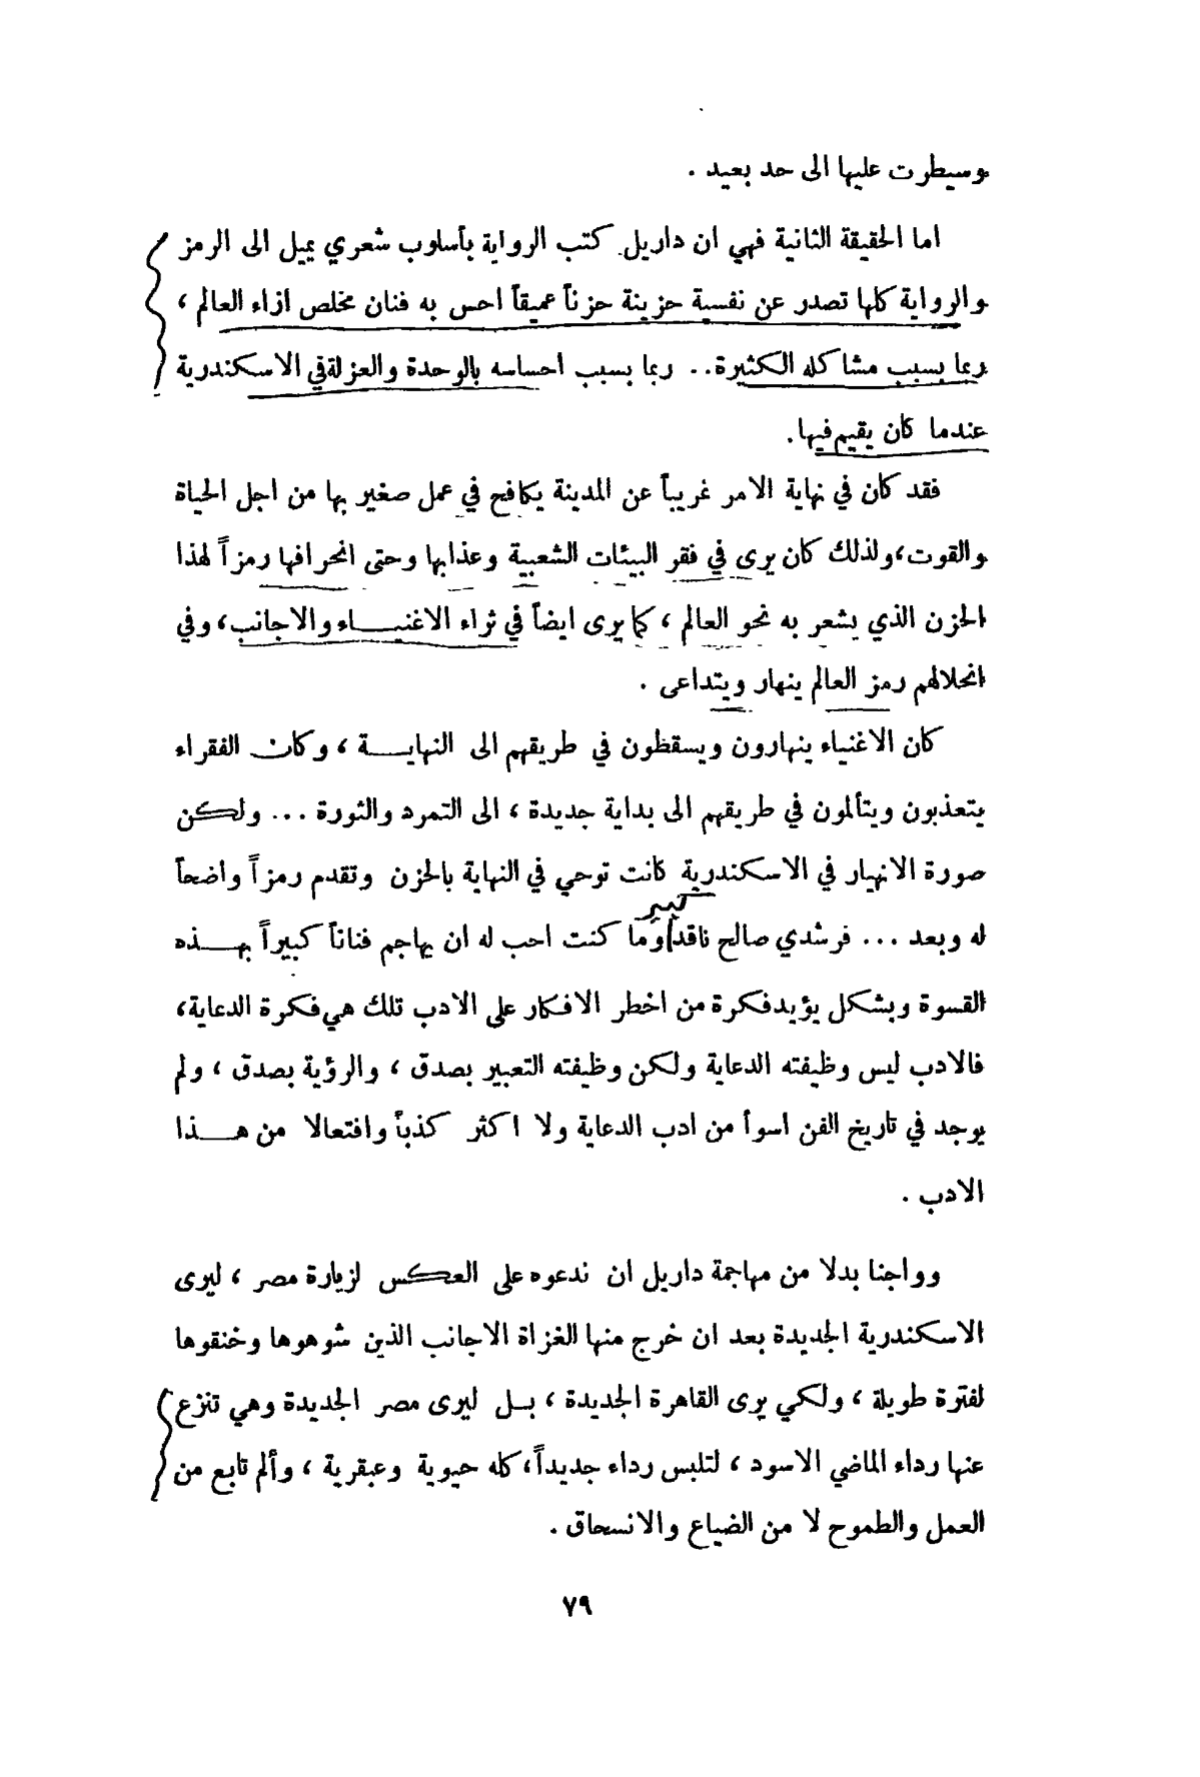 وسيطرت عليها الى حد بعيد .
اما الحقيقة الثانية فهي ان داريل كتب الرواية بأسلوب شعري يميل الى الرمز
والرواية كلها تصدر عن نفسية حزينة حزناً عميقاً احس به فنان مخلص ازاء العالم ،
ربما بسبب مشاكله الكثيرة .. ربما بسبب احساسه بالوحدة والعزلة في الاسكندرية
عندما كان يقيم فيها .
فقد كان في نهاية الامر غريباً عن المدينة يكافح في عمل صغير بها من اجل الحياة
والقوت ، ولذلك كان يرى في فقر البيئات الشعبية وعذابها وحتى انحرافها رمزاً لهذا
الحزن الذي يشعر به نحو العالم ، كما يرى ايضاً في ثراء الاغنيــاء والاجانب ، وفي
انحلالهم رمز العالم ينهار ويتداعى .
كان الاغنياء ينهارون ويسقطون في طريقهم الى النهايــة ، وكان الفقراء
يتعذبون ويتألمون في طريقهم الى بداية جديدة ، الى التمرد والثورة ... ولكن
صورة الانهيار في الاسكندرية كانت توحي في النهاية بالحزن وتقدم رمزاً واضحاً
كبير
له وبعد ... فرشدي صالح ناقد وما كنت احب له ان يهاجم فناناً كبيراً بهــذه
القسوة وبشكل يؤيد فكرة من اخطر الافكار على الادب تلك هي فكرة الدعاية ،
فالادب ليس وظيفته الدعاية ولكن وظيفته التعبير بصدق ، والرؤية بصدق ، ولم
يوجد في تاريخ الفن اسوأ من ادب الدعاية ولا اكثر كذباً وافتعالا من هــذا
الادب .
وواجنا بدلا من مهاجمة داريل ان ندعوه على العكس لزيارة مصر ، ليرى
الاسكندرية الجديدة بعد ان خرج منها الغزاة الاجانب الذين شوهوها وخنقوها
لفترة طويلة ، ولكي يرى القاهرة الجديدة ، بــل ليرى مصر الجديدة وهي تنزع
عنها رداء الماضي الاسود ، لتلبس رداء جديداً ، كله حيوية وعبقرية ، وألم تابع من
العمل والطموح لا من الضياع والانسحاق .
٧٩